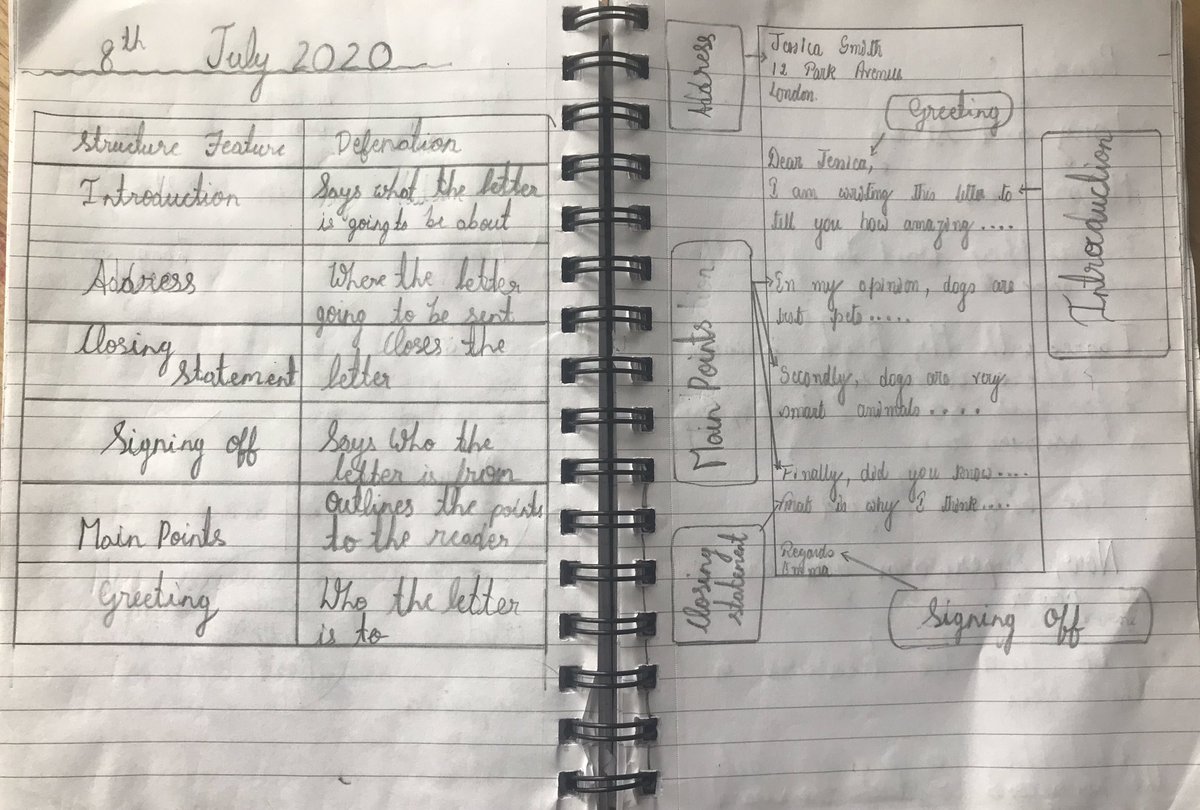 8th July 2020
Structure Feature
Defenation
Introduction
Says what the letter
is going to be about
Address
Where the letter
going to be sent
Closing
Statement
Closes the
letter
Signing off
Says Who the
letter is from
Main Points
outlines the points
to the reader
Greeting
Who the letter
is to
Address
Jessica Smith
12 Park Avenue
London.
Greeting
Dear Jessica,
I am writing this letter to
tell you how amazing ....
Introduction
Main Points
In my opinion, dogs are
best pets .....
Secondly, dogs are very
smart animals .....
Finally, did you know ....
That is why I think ....
Closing
statement
Regards
Emma
Signing off